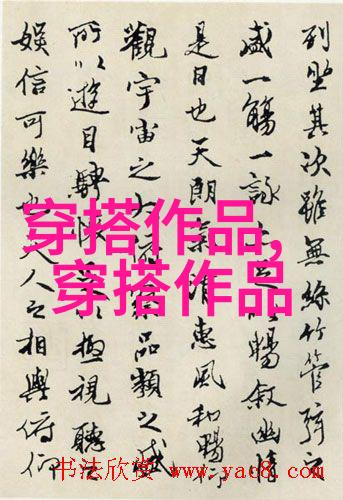 列坐其次雖無絲竹管弦之
盛一觴一詠亦足以暢敘幽情
是日也天朗氣清惠風和暢仰
觀宇宙之大俯察品類之盛
所以遊目騁懷足以極視聽之
娛信可樂也夫人之相與俯仰
穿搭作品,
穿搭作品
书法欣赏 www.yac8.com